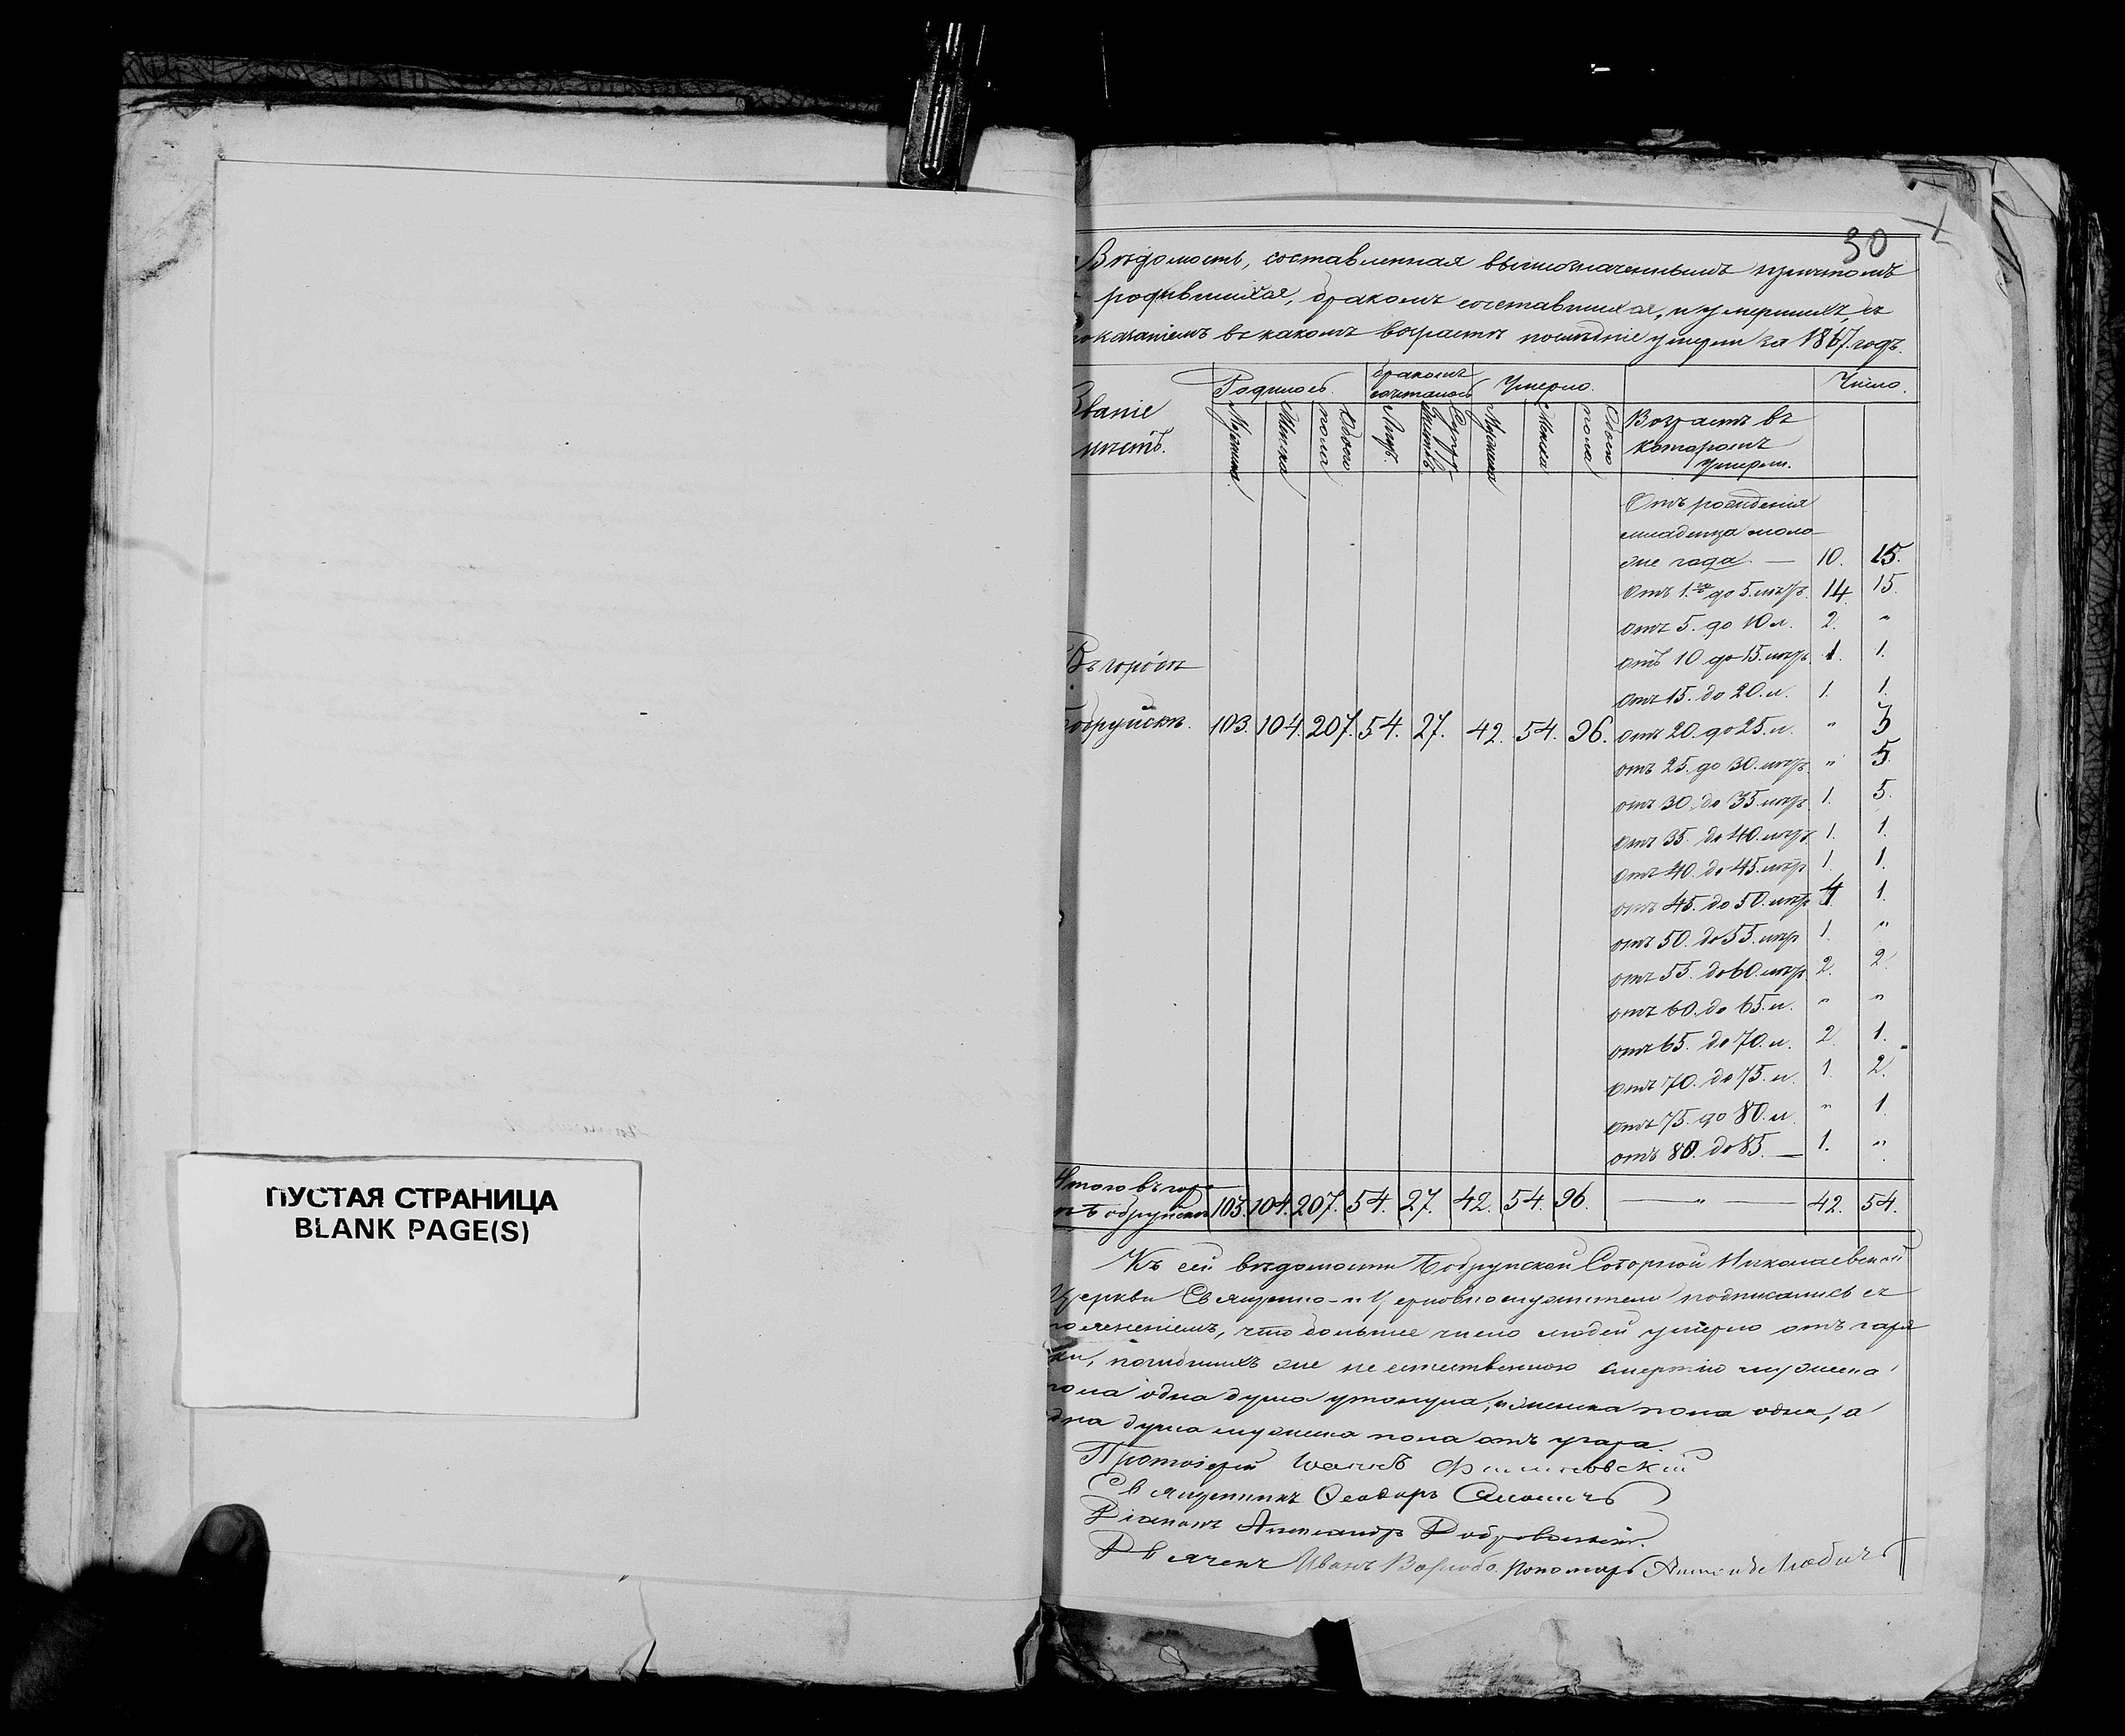 ПУСТАЯ СТРАНИЦА
BLANK PAGE(S)
30
Вѣдомость, составленная вышеозначеннымъ причтомъ
родившихся, бракомъ сочетавшихся, и умершихъ, съ
показаніемъ въ какомъ возрастѣ послѣдніе умерли за 1867. годъ.
Званіе
мѣстъ.
Родилось.
бракомъ
сочталось
Умерло.
Число.
Мужеска
Женска
Обоего
пола
Лицъ.
Супру-
жествъ
Мужеска
Женска
Обоего
пола
Возрастъ въ
которомъ
умерли.
Отъ рожденія
младенца моло-
же года. — 10. 15.
отъ 1.го до 5. лѣтъ. 14. 15.
отъ 5. до 10 л. 2. "
отъ 10 до 15. лѣтъ 1. 1.
отъ 15. до 20. л. 1. 1.
Въ городѣ
Бобруйскѣ. 103. 104. 207. 54. 27. 42. 54. 96. отъ 20. до 25. л. " 3
отъ 25. до 30. лѣтъ. " 5.
отъ 30. до 35. лѣтъ 1. 5.
отъ 35. до 40. лѣтъ 1. 1.
отъ 40. до 45. лѣтъ 1. 1.
отъ 45. до 50. лѣтъ 4. 1.
отъ 50. до 55. лѣтъ 1. "
отъ 55. до 60. лѣтъ 2. 2.
отъ 60. до 65. л. " "
отъ 65. до 70. л. 2. 1.
отъ 70. до 75. л. 1. 2.
отъ 75. до 80. л. " 1.
отъ 80. до 85. — 1. "
Итого въ горо
дѣ Бобруйскѣ 103. 104. 207. 54. 27. 42. 54. 96. — " — 42. 54.
Къ сей вѣдомости Бобруйской Соборной Николаевской
Церкви Священно-и Церковнослужители подписались съ
поясненіемъ, что большее число людей умерло отъ горяч
ки, погибшихъ же не естественною смертію мужеска
пола одна душа утонула, и женска пола одна, а
одна душа мужеска пола отъ угара.
Протоіерей Іоаннъ
Священникъ Ѳеодоръ
Діаконъ Александръ
Дьячекъ Иванъ пономарь